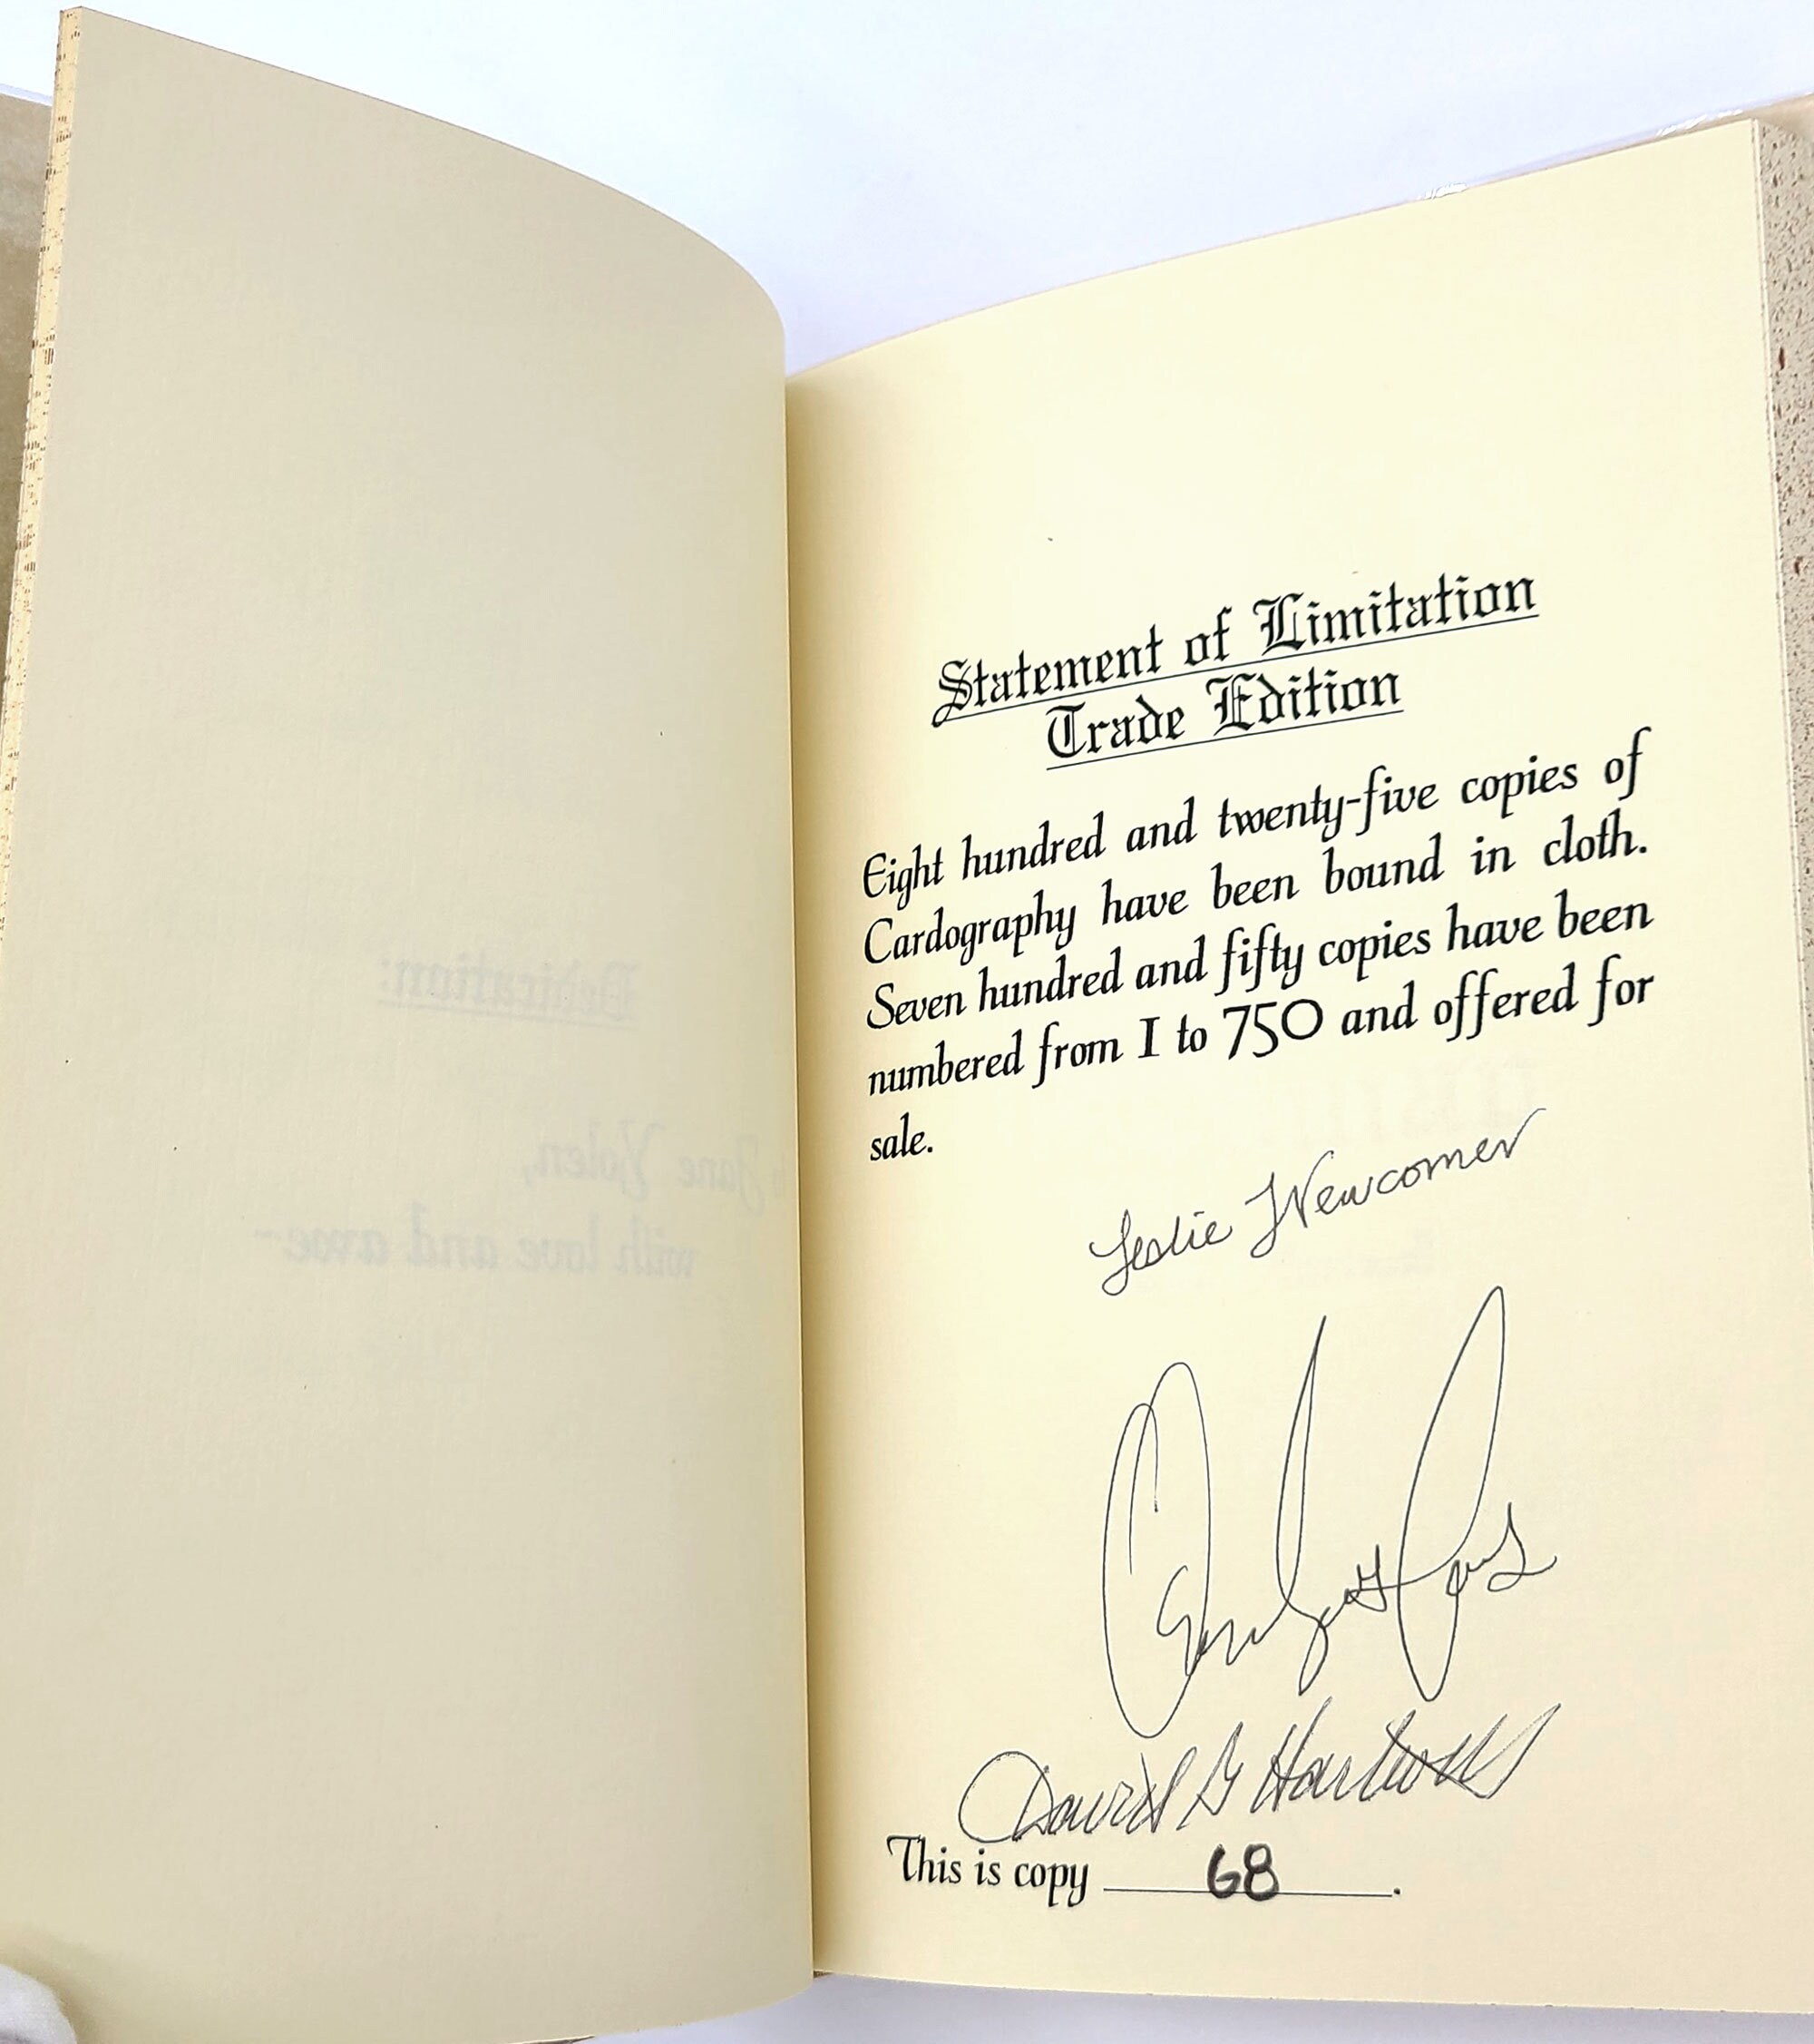 Dedication:
Jane Yolen,
with love and awe-
Statement of Limitation
Trade Edition
Eight hundred and twenty-five copies of
Cardography have been bound in cloth.
Seven hundred and fifty copies have been
numbered from I to 750 and offered for
sale.
Leslie Newcomer
David G Hartwell
This is copy 68.